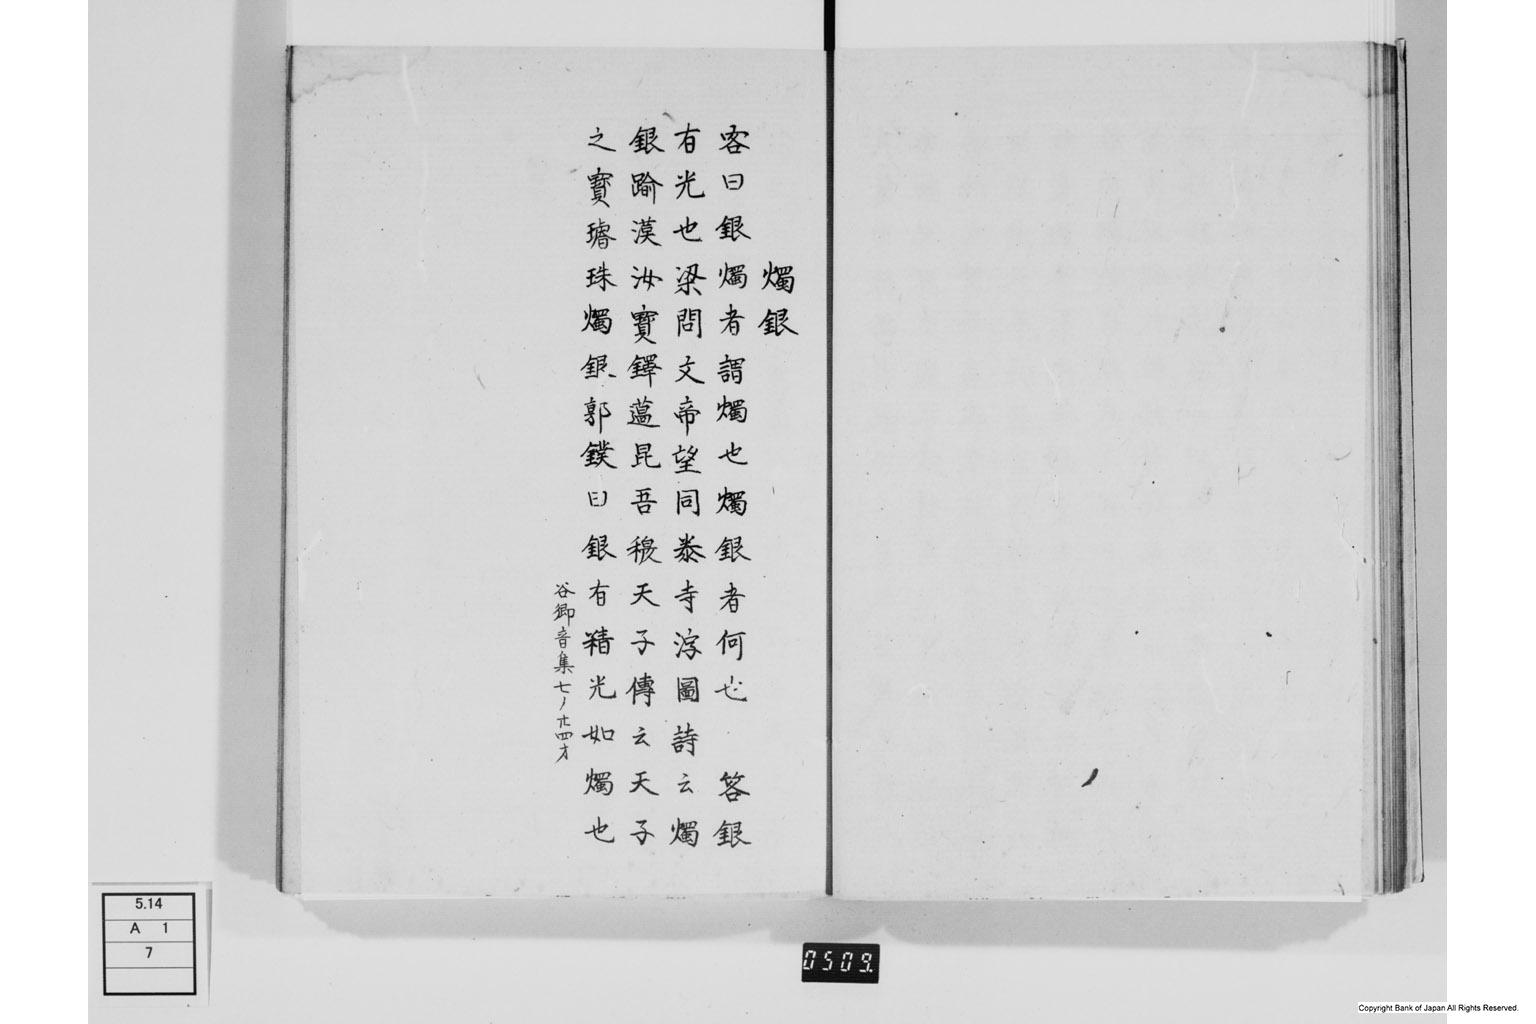 燭銀
客曰銀燭者謂燭也燭銀者何也 答銀
有光也梁問文帝望同泰寺浮圖詩云燭
銀踰漢汝寶鐸邁昆吾穆天子傳云天子
之寶璿珠燭銀郭鏷曰銀有精光如燭也
谷響音集七ノ廿四才
5.14
A 1
7
0509.
Copyright Bank of Japan All Rights Reserved.